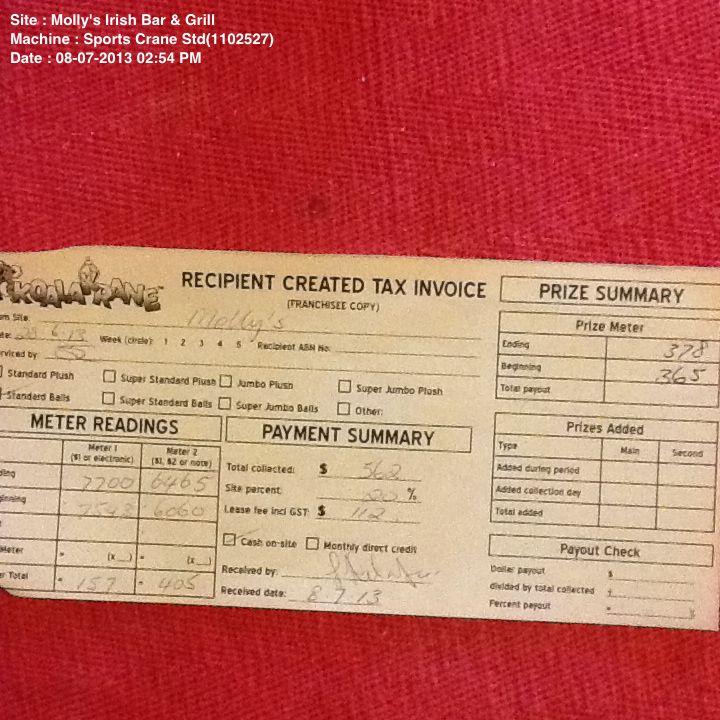 Site : Molly's Irish Bar & Grill
Machine : Sports Crane Std(1102527)
Date : 08-07-2013 02:54 PM
KOALA KRANE
RECIPIENT CREATED TAX INVOICE
(FRANCHISEE COPY)
m Site: Molly's
te: 6.13 Week (circle): 1 2 3 4 5 Recipient ABN No.
rviced by
Standard Plush Super Standard Plush Jumbo Plush Super Jumbo Plush
Standard Balls Super Standard Balls Super Jumbo Balls Other:
METER READINGS
Meter 1 ($1 or electronic) Meter 2 ($1, $2 or note)
ding 7700 6465
ginning 7543 6060
Meter = (x__) = (x__)
er Total = 157 = 405
PAYMENT SUMMARY
Total collected: $ 562
Site percent: 20 %
Lease fee incl GST: $ 112
Cash on-site Monthly direct credit
Received by:
Received date: 8 7 13
PRIZE SUMMARY
Prize Meter
Ending 378
Beginning 365
Total payout
Prizes Added
Type Main Second
Added during period
Added collection day
Total added
Payout Check
Dollar payout $
divided by total collected ÷
Percent payout = %